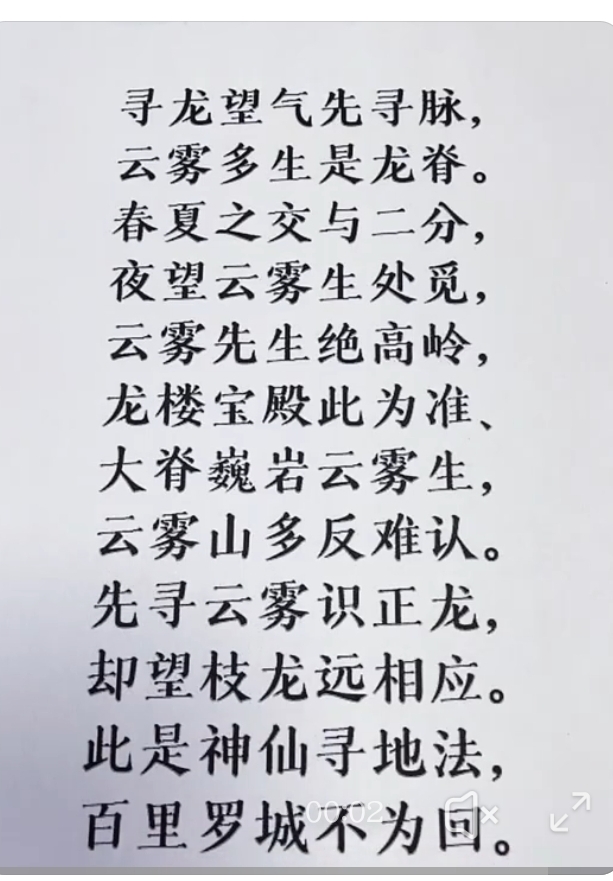 寻龙望气先寻脉，
云雾多生是龙脊。
春夏之交与二分，
夜望云雾生处觅，
云雾先生绝高岭，
龙楼宝殿此为准、
大脊巍岩云雾生，
云雾山多反难认。
先寻云雾识正龙，
却望枝龙远相应。
此是神仙寻地法，
百里罗城不为回。
00:02